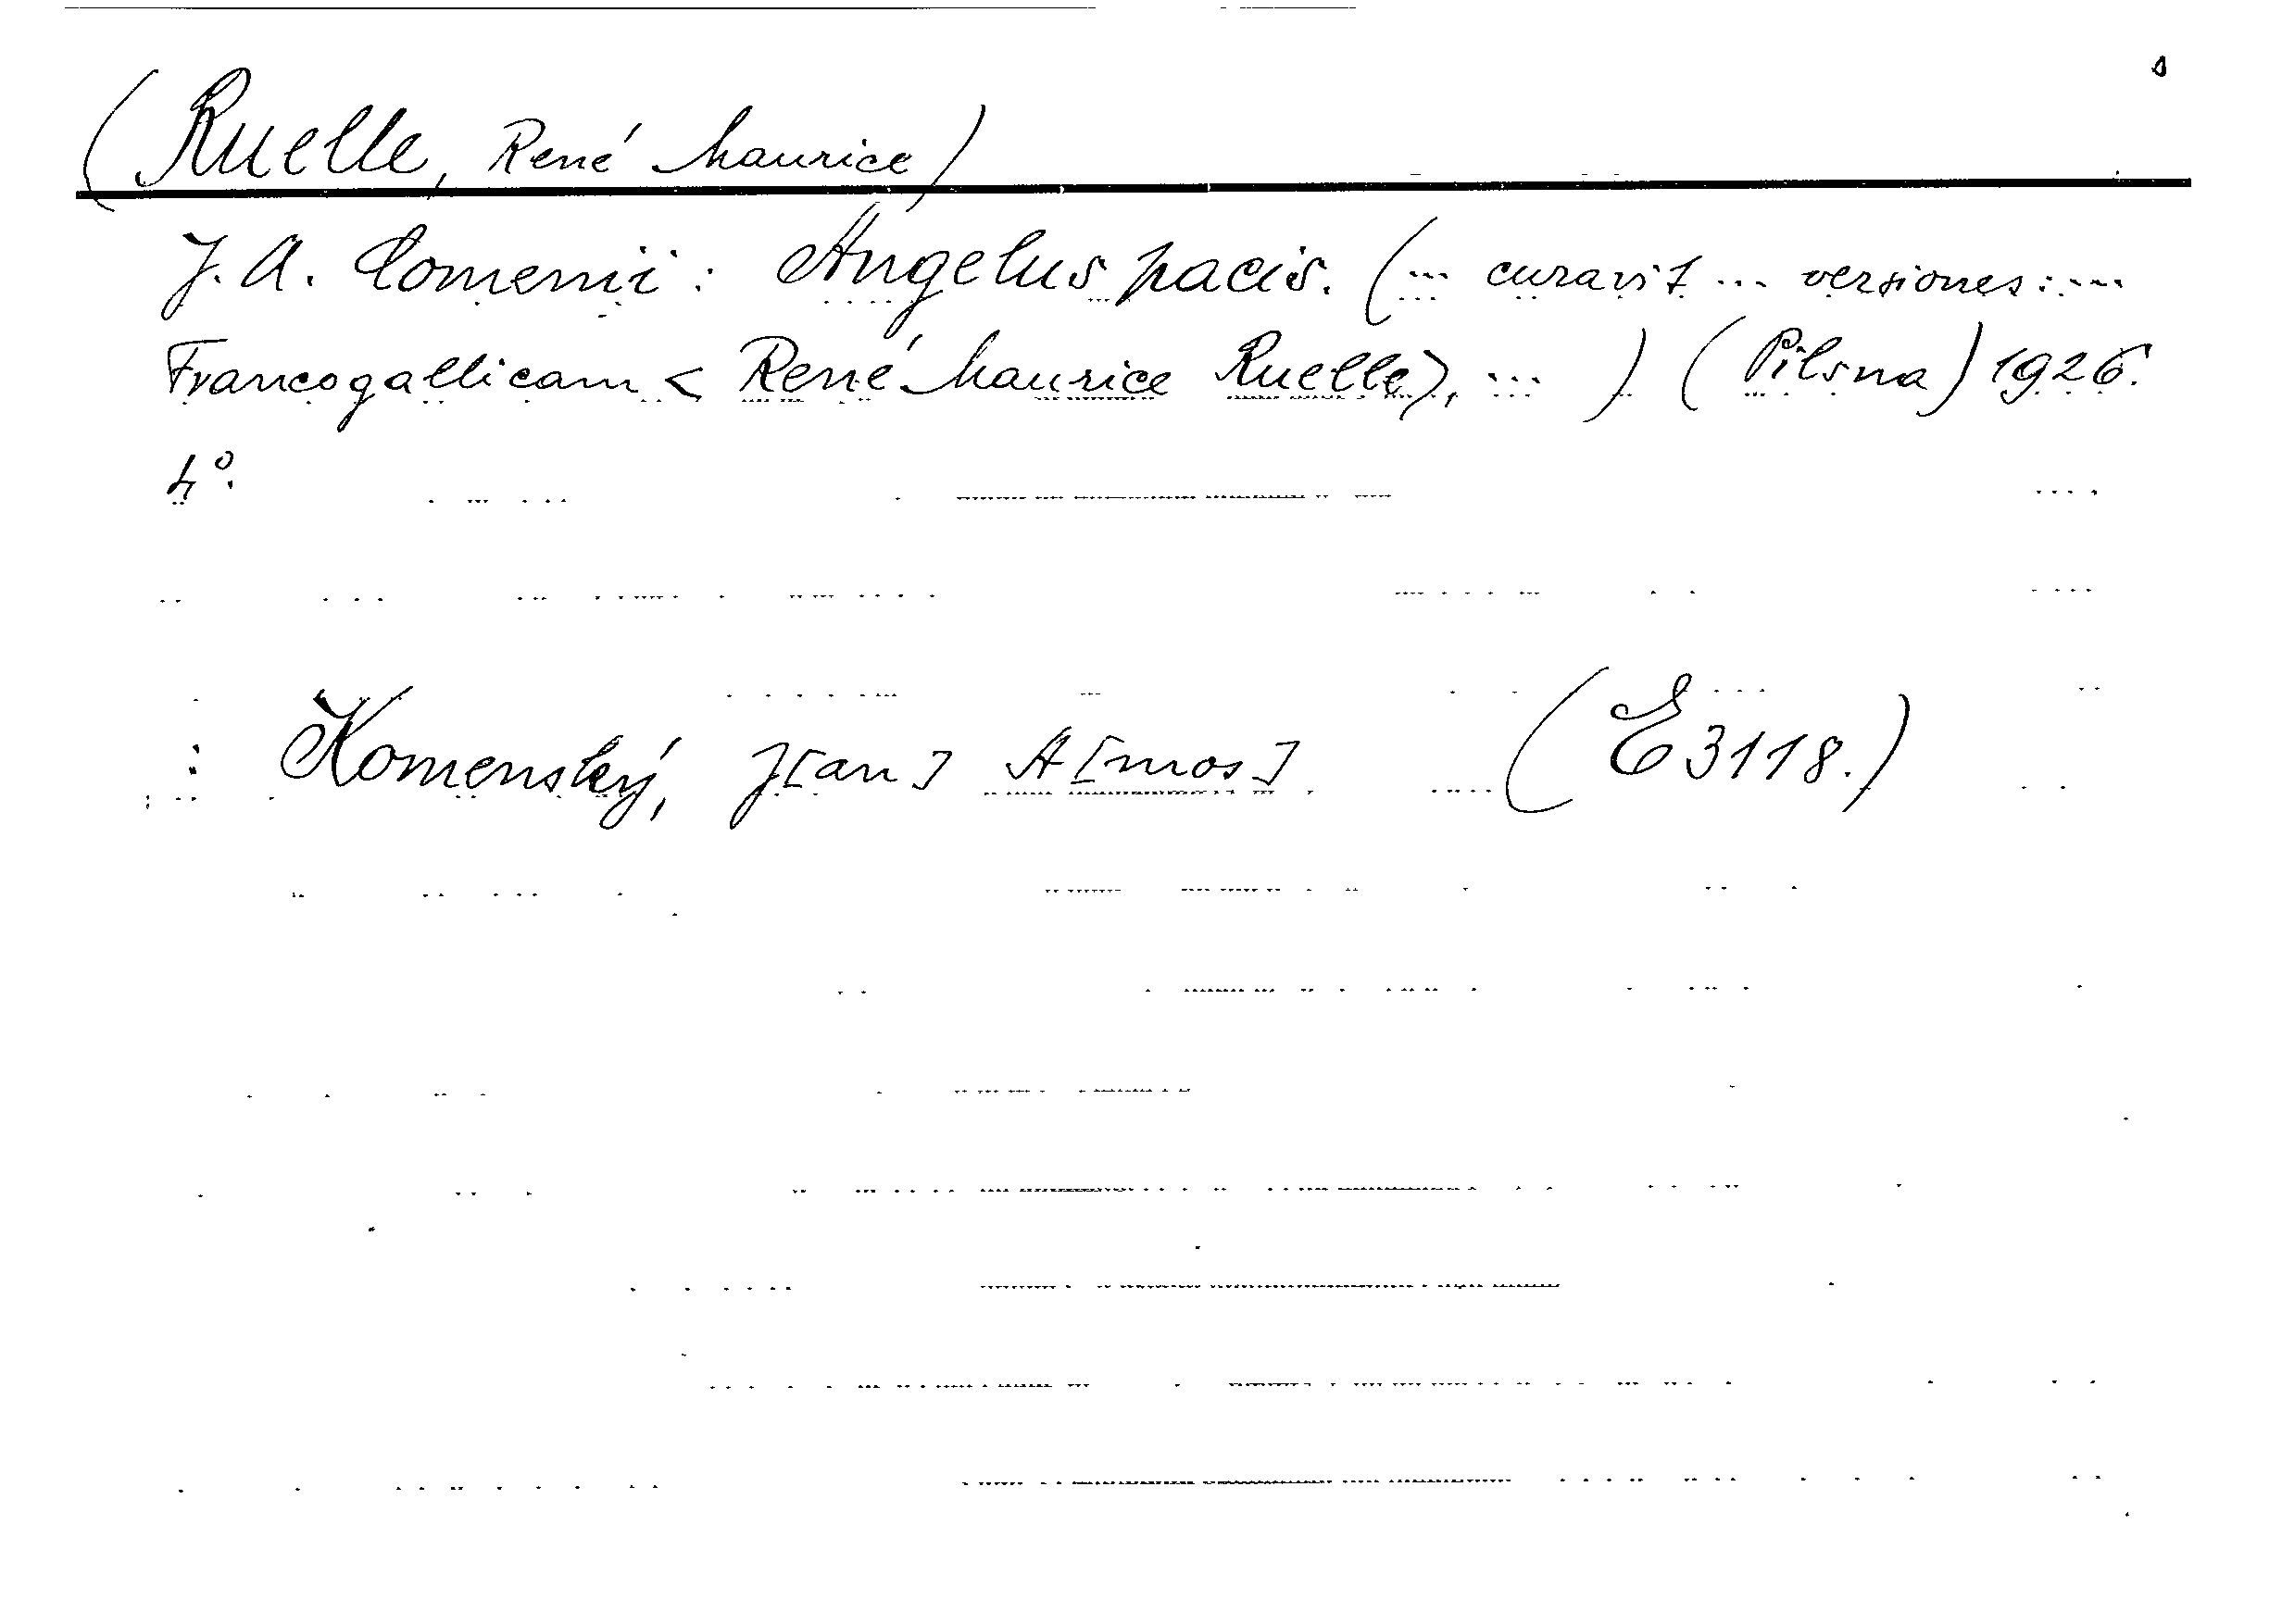 (Ruelle, René Maurice)
J. A. Comenii: Angelus pacis. (... curavit ... versiones: ...
Francogallicam < René Maurice Ruelle), ... ) (Pilsna) 1926.
4°.
: Komenský, J[an] A[mos] (E 3118.)